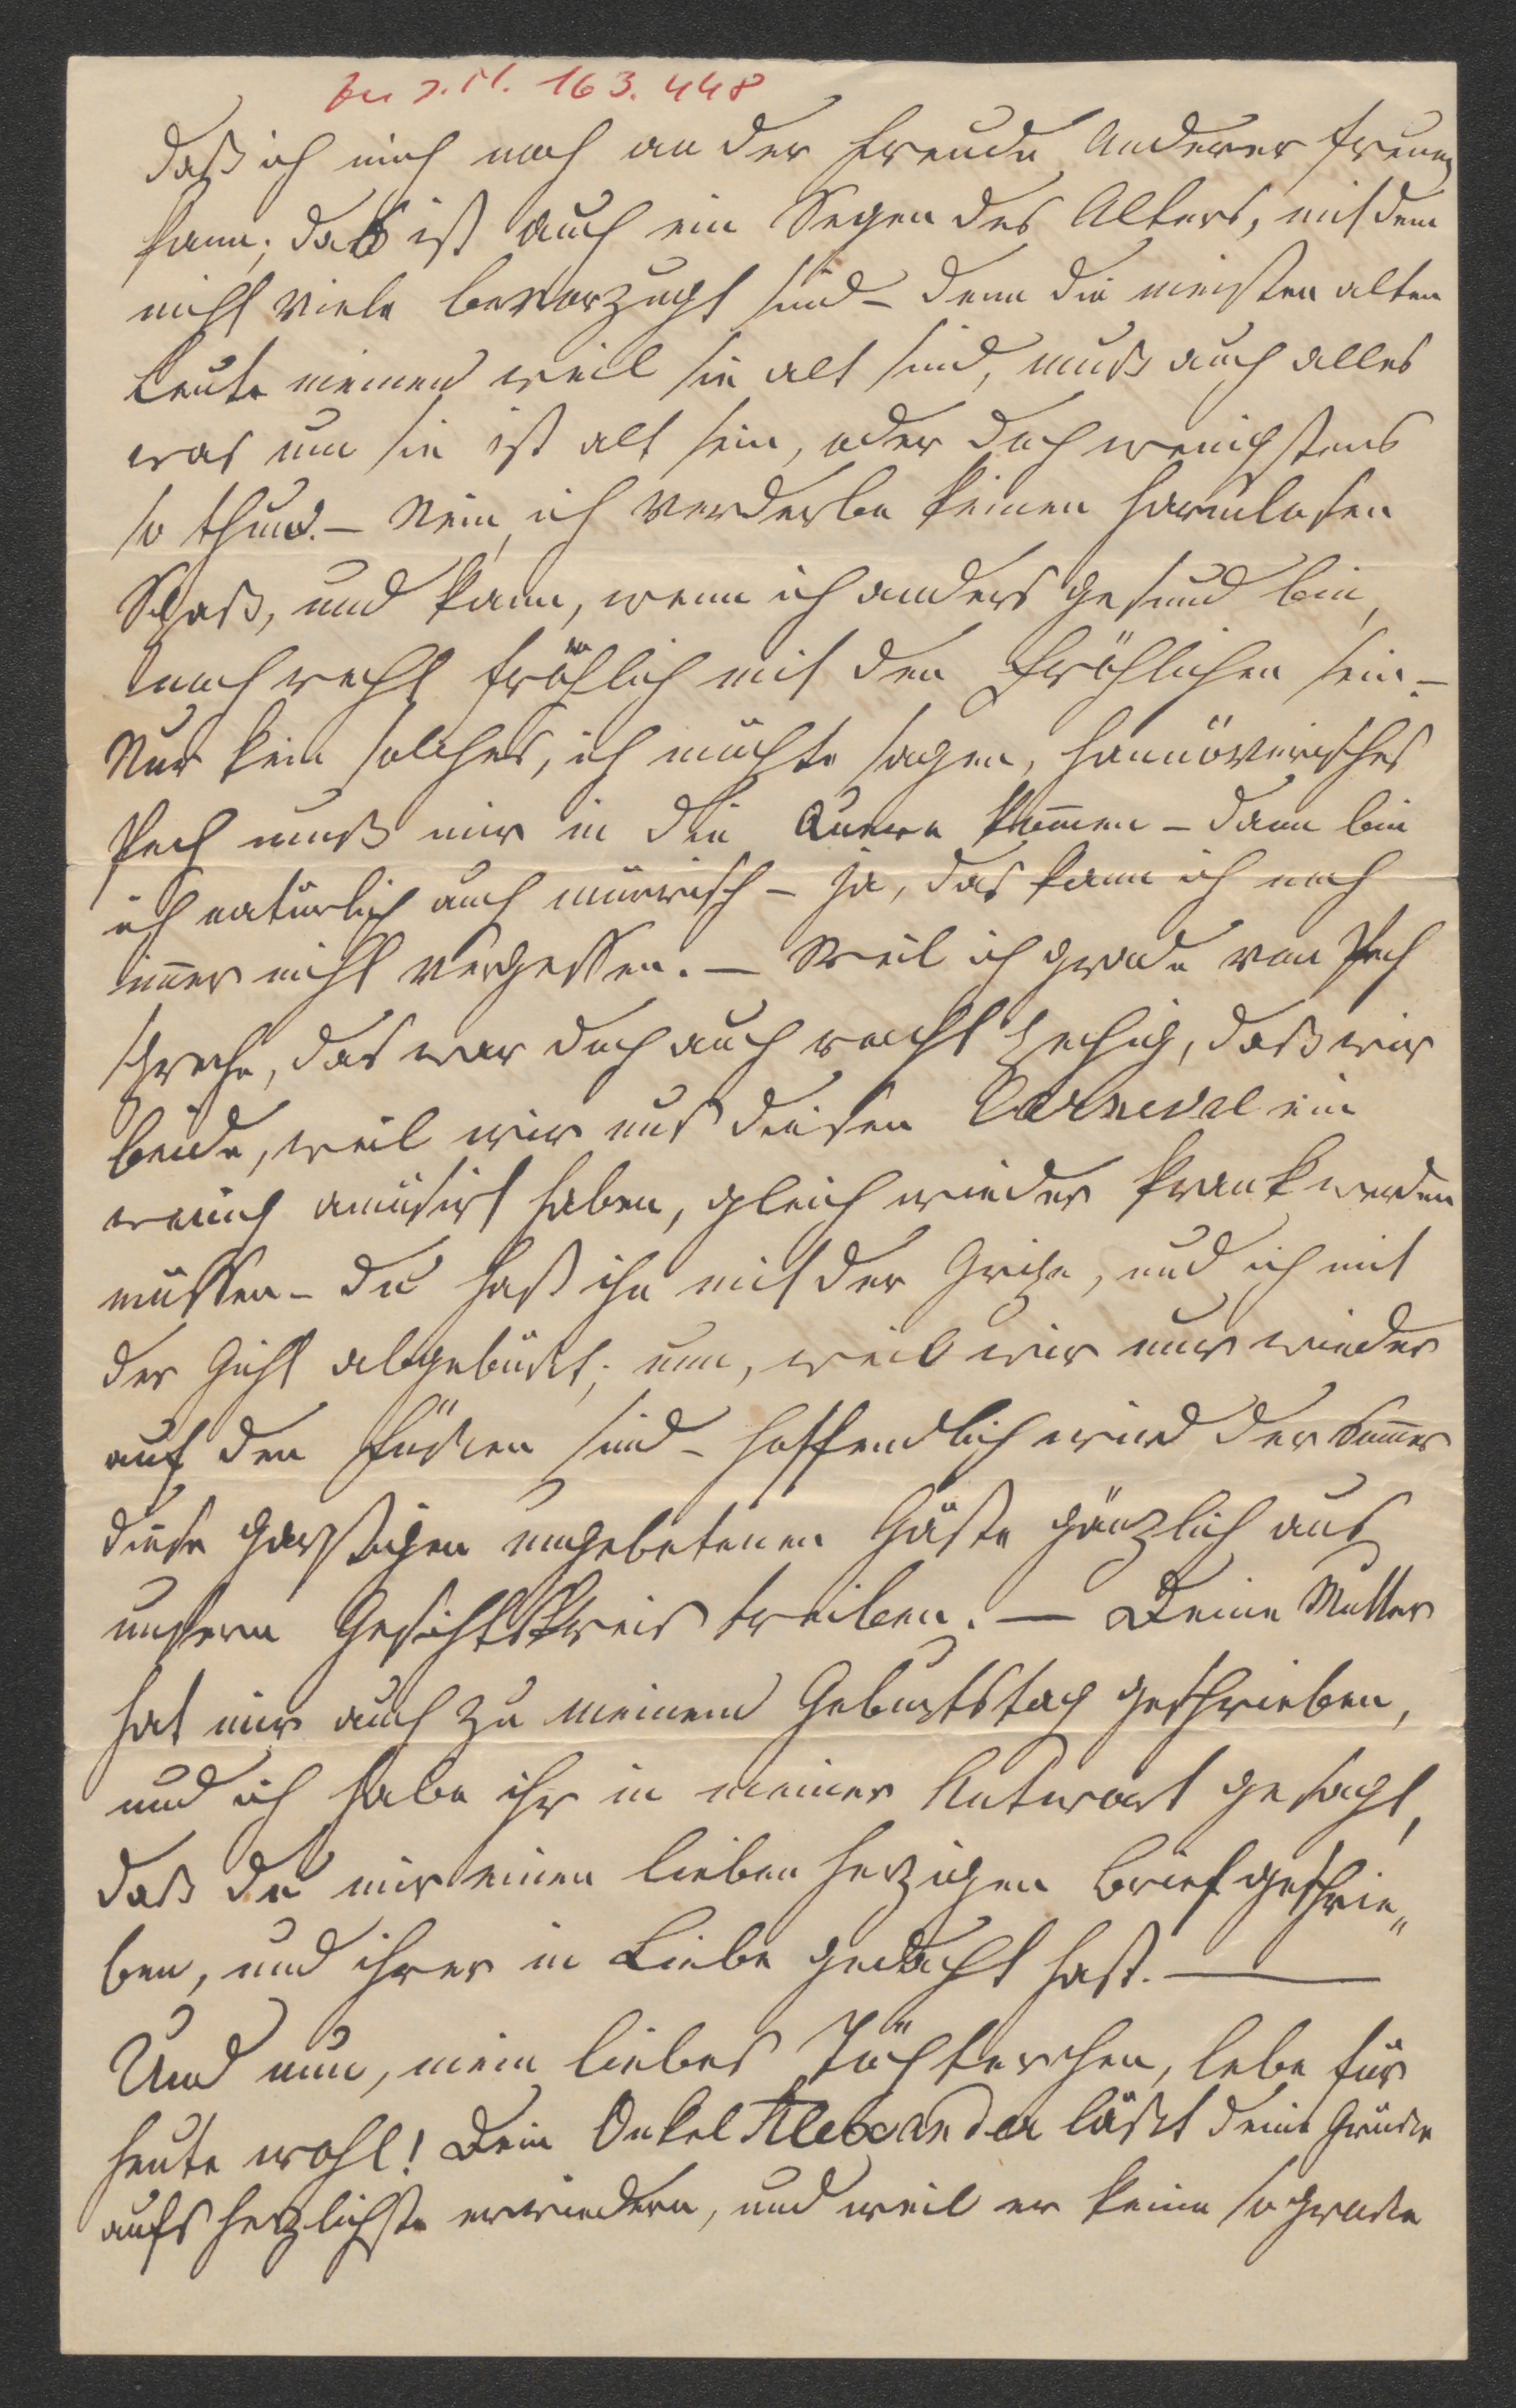 Zu J.N. 163.448
daß ich mich noch an der Freude Anderer freuen
kann; das ist auch ein Segen des Alters, mit dem
nicht viele bevorzugt sind – denn die meisten alten
Leute meinen weil sie alt sind, muß auch alles
was um sie ist alt sein, oder doch wenigstens
so thun. – Nein, ich verderbe keinen harmlosen
Spaß, und kann, wenn ich anders gesund bin,
noch recht fröhlich mit den Fröhlichen sein –
Nur kein solches, ich möchte sagen, hannöverisches
Pech muß mir in die Quere kom̅en – dann bin
ich natürlich auch mürrisch – ja, das kann ich noch
im̅er nicht vergessen. – Weil ich grade von Pech
spreche, das war doch auch recht pechig, daß wir
beide, weil wir uns diesen Carneval ein
wenig amüsirt haben, gleich wieder krank werden
müssen – Du hast ihn mit der Grippe, und ich mit
der Gicht abgebüßt; nun, weil wir nur wieder
auf den Füßen sind – hoffendlich wird der Som̅er
diese garstigen ungebetenen Gäste gänzlich aus
unserm Gesichtskreis treiben. – Deine Mutter
hat mir auch zu meinem Geburtstag geschrieben,
und ich habe ihr in meiner Antwort gesagt,
daß Du mir einen lieben herzigen Brief geschrie„
ben, und ihrer in Liebe gedacht hast. —
Und nun, mein liebes Töchterchen, lebe für
heute wohl! Dein Onkel Alexander läßt deine Grüße
aufs herzlichste erwiedern, und weil er keine so große